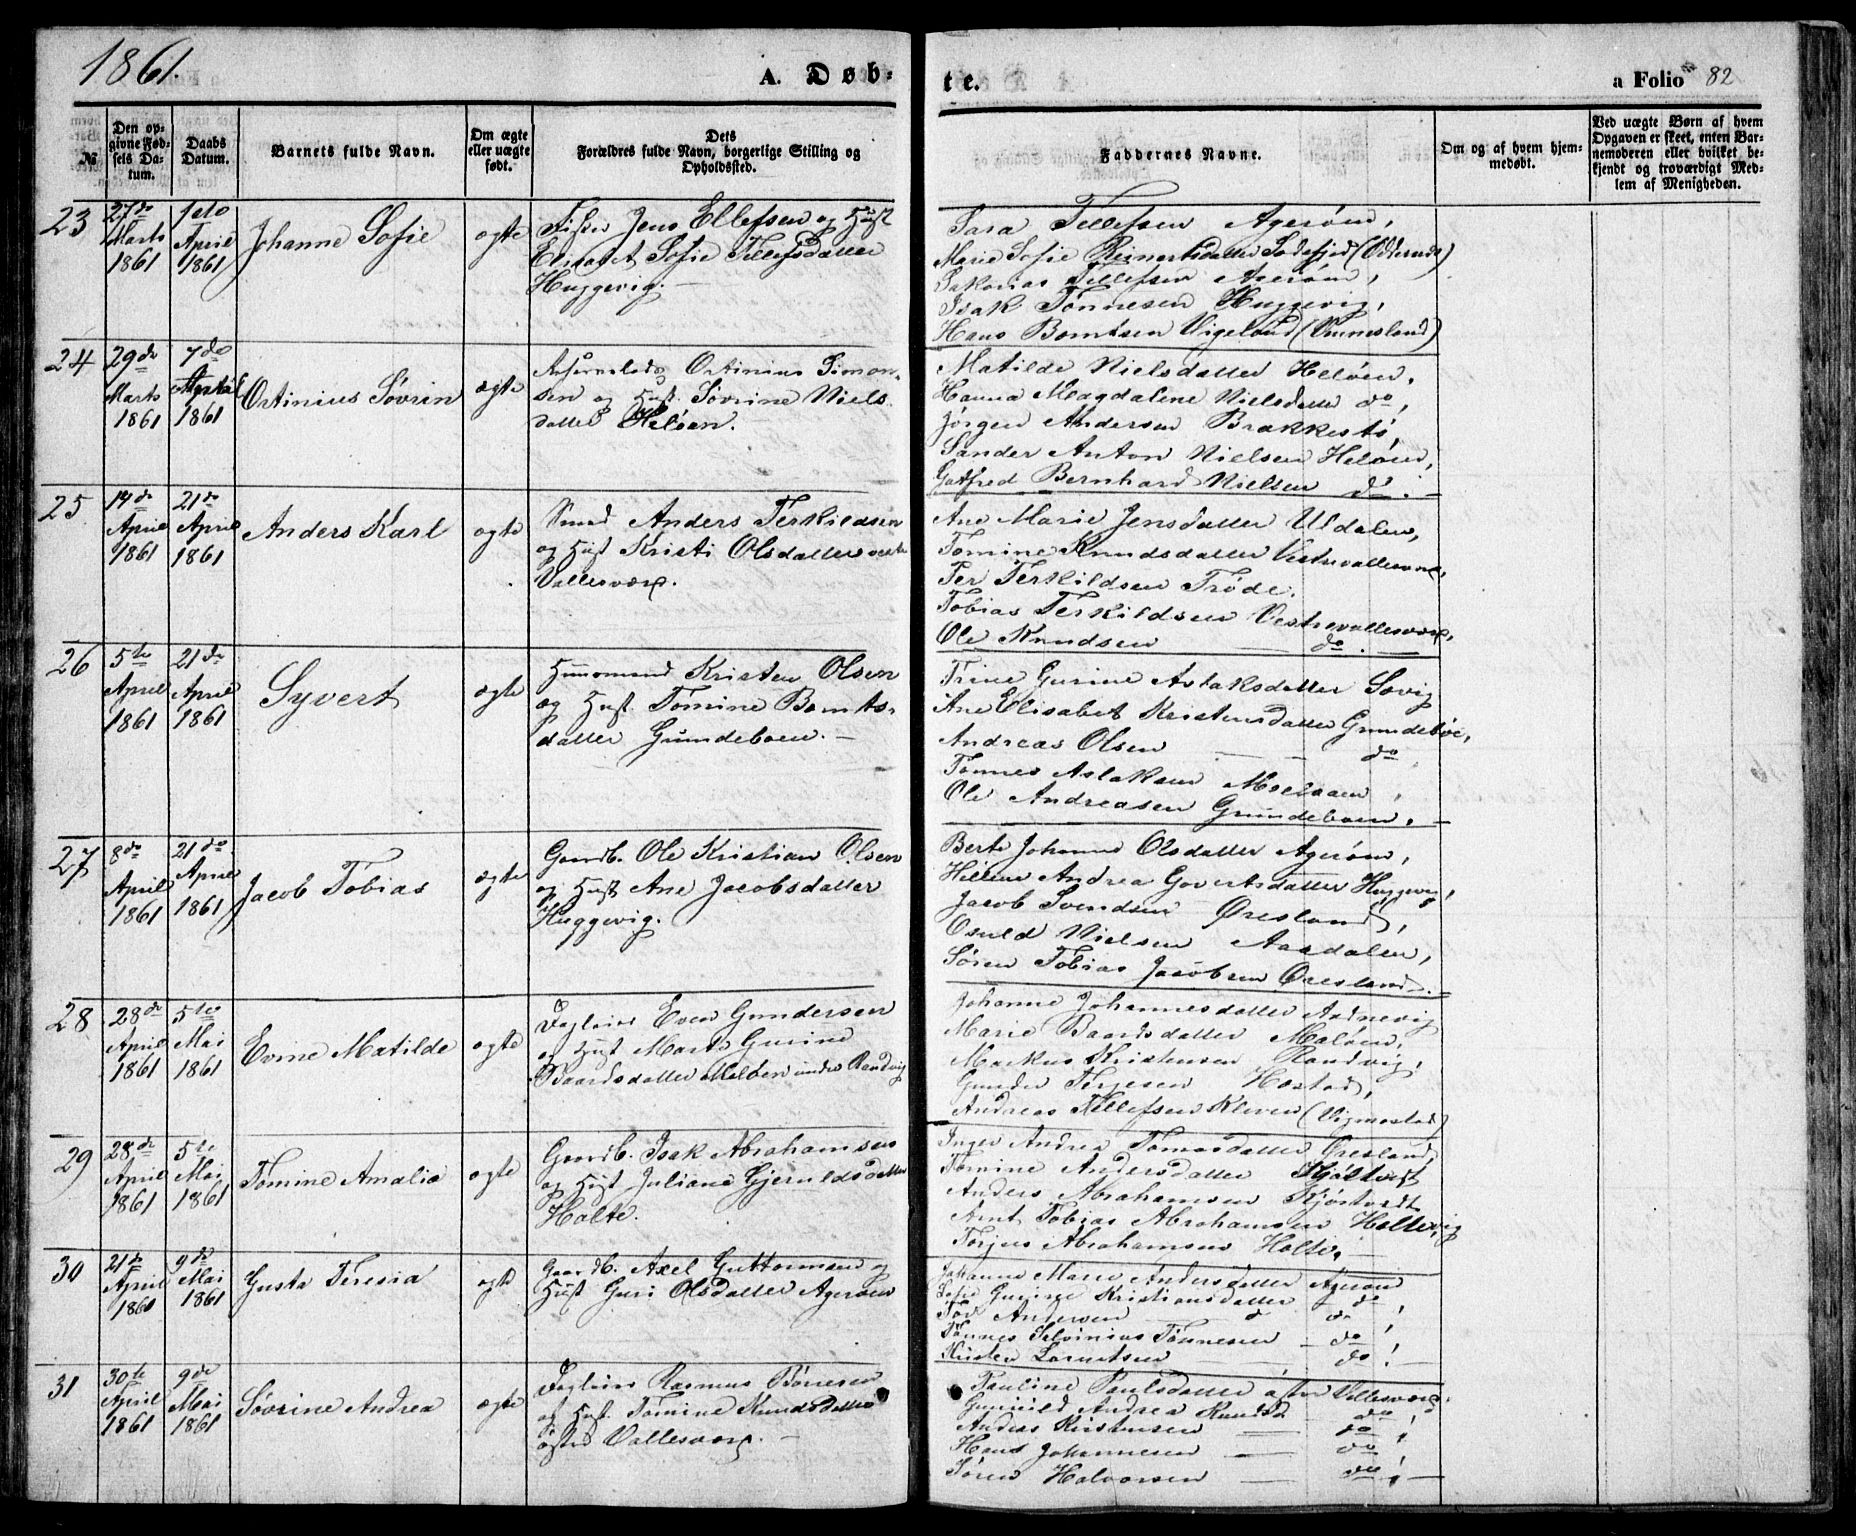 1861.
A. Døb-
te.
a Folio 82
№
Den op-
givne Fød-
sels Da-
tum.
Daabs
Datum.
Barnets fulde Navn.
Om ægte
eller uægte
født.
Dets
Forældres fulde Navn, borgerlige Stilling og
Opholdssted.
Faddernes Navne.
Om og af hvem hjem-
medøbt.
Ved uægte Børn af hvem
Opgaven er skeet, enten Bar-
nemoderen eller hvilket be-
kjendt og troværdigt Med-
lem af Menigheden.
23
27de
Marts
1861
1ste
April
1861
Johanne Sofie
ægte
Fisker Jens Ellefsen og Hust
Elisabet Sofie Tellefsdatter
Huggevig.
Sara Tellefsen Agerøen,
Marie Sofie Reinertsdatter (Oddernæs)
Sakarias Tellefsen Agerøen,
Isak Tønnesen Huggevig,
Hans Berntsen Vigeland (Vennesland)
24
29de
Marts
1861
7de
April
1861
Ortinius Søvrin
ægte
Ortinius Simon-
sen og Hust. Søvrine Niels
datter Heløen.
Matilde Nielsdatter Heløen,
Hanna Magdalene Nielsdatter do,
Jørgen Andersen Brækkestø,
Sander Anton Nielsen Heløen,
Gotfred Bernhard Nielsen do.
25
14de
April
1861
21de
April
1861
Anders Karl
ægte
Smed Anders Terkildsen
og Hust Kristi Olsdatter vestre
Vallesværd.
Ane Marie Jensdatter Uldalen,
Tomine Knudsdatter Vestrevallesværd,
Per Terkildsen Trøde.
Tobias Terkildsen Vestrevallesværd,
Ole Knudsen do.
26
5te
April
1861
21de
April
1861
Syvert
ægte
Huusmand Kristen Olsen
og Hust. Tomine Bernts-
datter Gundeboen.
Trine Gurine Aslaksdatter Søvig
Ane Elisabet Kristensdatter Grundebøe,
Andreas Olsen do
Tønnes Aslaksen Moelaaen,
Ole Andreasen Grundeboen.
27
8de
April
1861
21de
April
1861
Jacob Tobias
ægte
Gaardb. Ole Kristian Olsen
og Hust Ane Jacobsdatter
Huggevig.
Berte Johanne Olsdatter Agerøen,
Hellene Andrea Govertsdatter Huggevig,
Jacob Svendsen Øresland,
Osuld Nielsen Aasdalen,
Søren Tobias Jacobsen Øresland.
28
28de
April
1861
5te
Mai
1861
Evine Matilde
ægte
Dagleier Even Gundersen
og Hust Marte Gurine
Baardsdatter Melbøen under Randvig
Johanne Johannesdatter Aadnevig
Marie Baardsdatter Maløen,
Markus Kristensen Randvig,
Gunder Terjesen Høstad,
Andreas Tellefsen Kleven (Vigmostad)
29
28de
April
1861
5te
Mai
1861
Tomine Amalia
ægte
Gaardb. Isak Abrahamsen
og Hust Juliane Gjeruldsdatter
Holte.
Inger Andrea Tomasdatter Øresland,
Tomine Andersdatter Kjøstvedt
Anders Abrahamsen Kjøstvedt
Arnt Tobias Abrahamsen Holtevig
Torjus Abrahamsen Holte.
30
21de
April
1861
9de
Mai
1861
Gusta Teresia
ægte
Gaardb. Axel Guttormsen og
Hust Guri Olsdatter Agerøen
Johanne Marie Andersdatter Agerøen
Sofie Gurine Kristiansdatter do,
Tor Andersen do,
Tønnes Salvinius Tønnesen do
Kristen Lorentsen do!
31
30te
April
1861
9de
Mai
1861
Søvrine Andrea
ægte
Dagleier Rasmus Bønesen
og Hust. Tomine Knudsdatter
østre Vallesværd.
Pauline Paulsdatter østre Vallesværd.
Gunvold Andrea Knudsd do,
Anders Kristensen do,
Hans Johannesen do
Søren Halvorsen do,